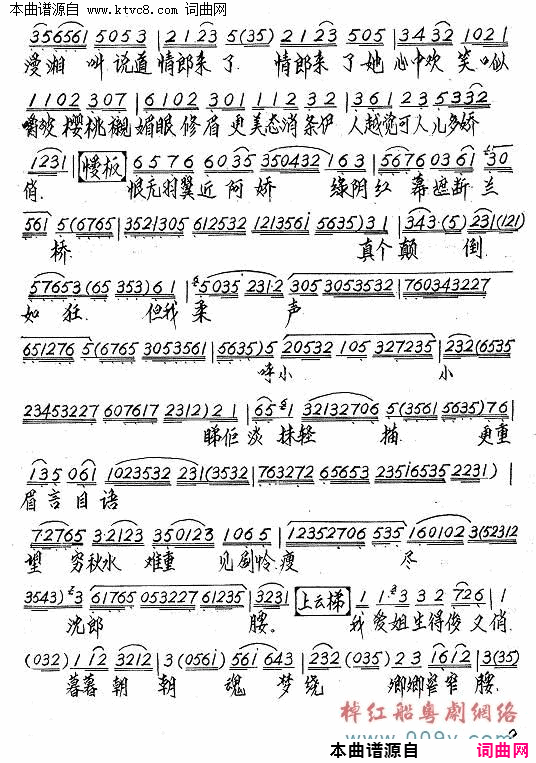 本曲谱源自 www.ktvc8.com 词曲网
356561 5053 | 2123 5(35) 2123 505 | 3432 102
漫湘 叫说道情郎来了 情郎来了她心中欢笑似
1102 307 | 6102 301 112 32 | 361 23 5332
樱桃 媚眼修眉更美态消 人越觉可人儿多娇
1231 | 慢板 6576 6035 350432 163 | 5676 0361 30
俏. 恨无羽翼近阿娇 绿阴红幕遮断兰
561 5(6765 | 3521305 612532 1213561 5635) 31 | 343(5) 231(121)
桥. 真个颠倒
57653(65 353)61 | 5035 2312 305 3053532 | 760343227
如狂. 但我柔声
651276 5(6765 3053561 | 5635)5 20532 105 327235 | 232(6535
呼小 小
23453227 607617 2312)21 | 65 1 32132706 5(3561 5635)76 |
睇佢淡抹轻描. 更重
135 061 1023532 231(3532 | 763272 65653 23516535 2231) |
眉言目语
72765 32123 350123 1065 | 12352706 535 160102 3(52312
望穷秋水难重见 怜瘦尽
3543)3 61765 053227 61235 | 3231 | 上云梯 1 1 3 32 726 | 1
沈郎 腰。 我爱姐生得俊又俏.
(032) 112 3212 | 3(0561) 561 643 | 232(035) 23 1612 | 3(35)
暮暮朝朝魂梦绕 鄉鄉 窄腰.
棹红船粤劇網络
www.009y.com
2
本曲谱源自 词曲网